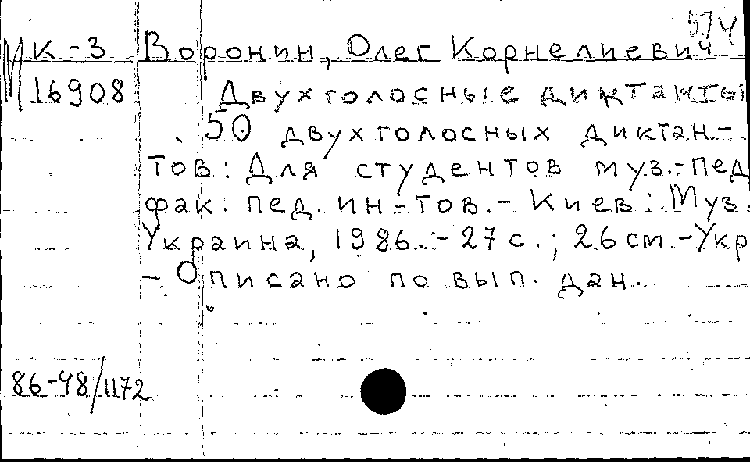 574
МК-3 Воронин, Олег Корнелиевич
16908 Двухголосные диктанты
50 двухголосных диктан-
тов: Для студентов муз.-пед
фак. пед. ин-тов.- Киев: Муз.
Украина, 1986.-27 с.; 26 см.-Укр
- Описано по вып. дан.
86-48/1172